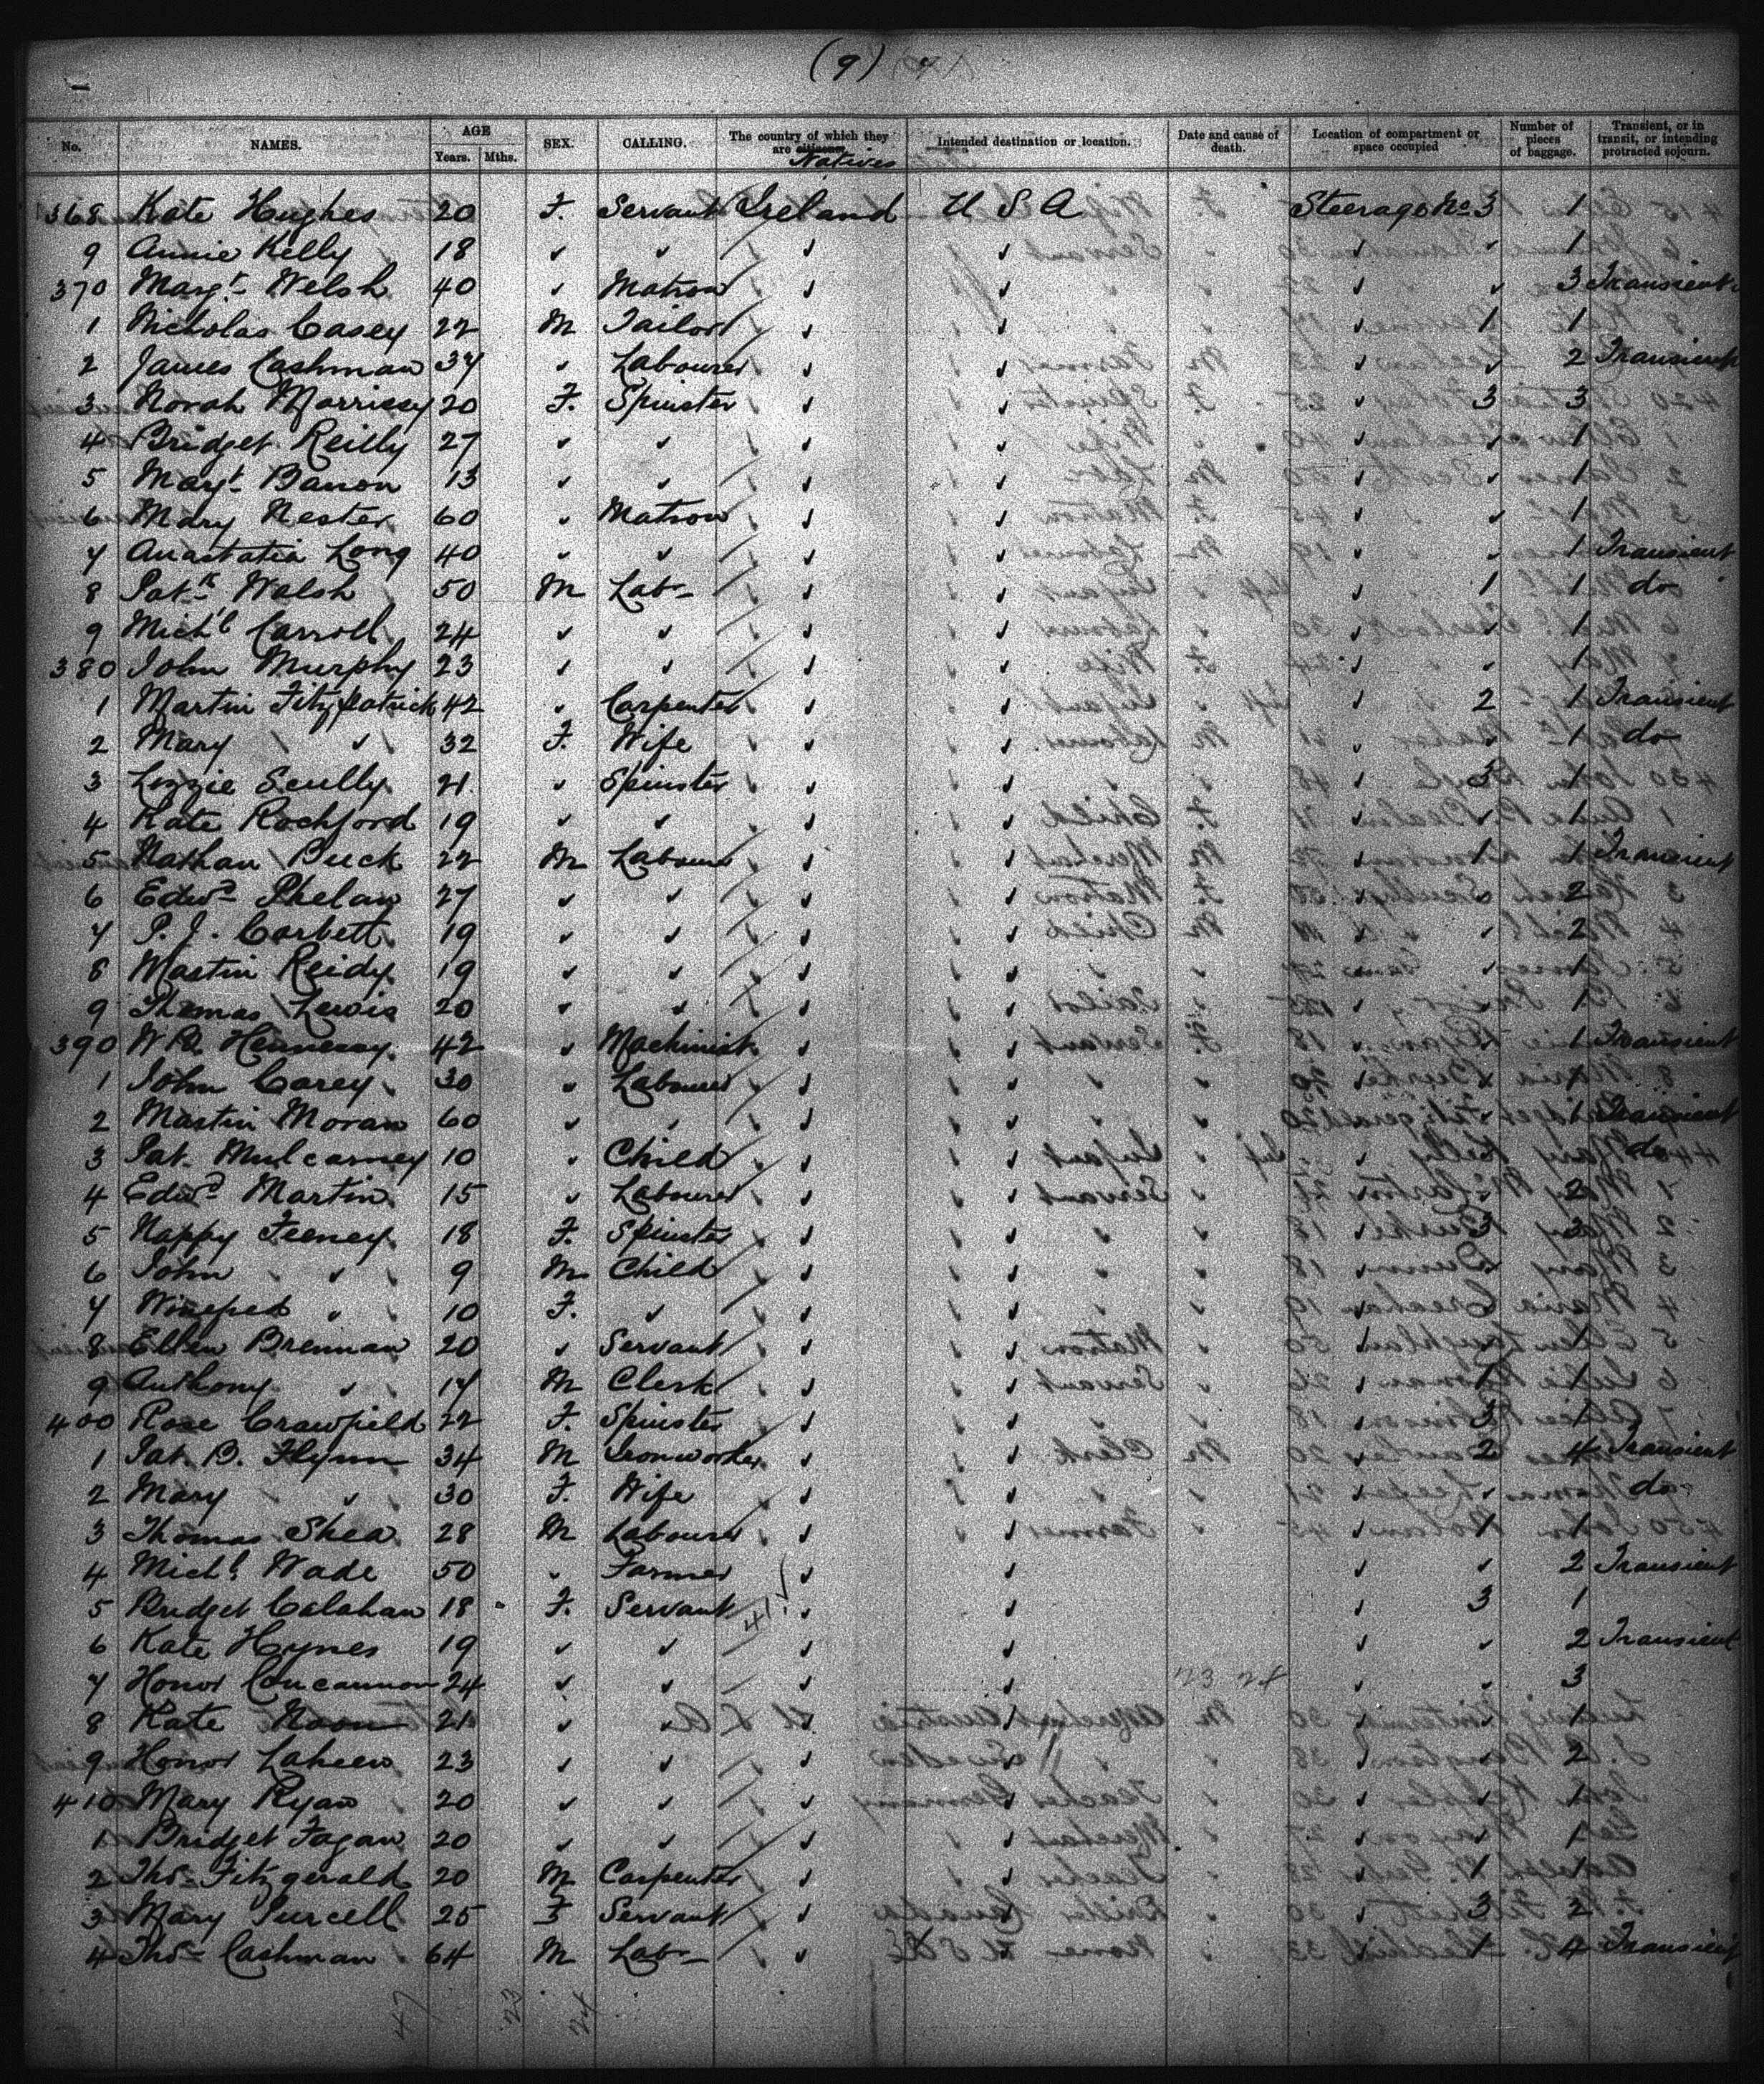 (9)
No. NAMES. AGE Years. Mths. SEX. CALLING. The country of which they are citizens. Natives Intended destination or location. Date and cause of death. Location of compartment or space occupied Number of pieces of baggage. Transient, or in transit, or intending protracted sojourn.
368 Kate Hughes 20 F. Servant Ireland U S A Steerage No 3 1
9 Annie Kelly 18 ✓ ✓ ✓ ✓ ✓ ✓ 1
370 Margt Welsh 40 ✓ Matron ✓ ✓ ✓ ✓ 3 Transient
1 Nicholas Casey 22 M Tailor ✓ ✓ ✓ 1 1
2 James Cashman 34 ✓ Labourer ✓ ✓ ✓ ✓ 2 Transient
3 Norah Morrissey 20 F. Spinster ✓ ✓ ✓ 3 3
4 Bridget Reilly 27 ✓ ✓ ✓ ✓ ✓ ✓ 1
5 Margt Banon 13 ✓ ✓ ✓ ✓ ✓ ✓ 1
6 Mary Nester 60 ✓ Matron ✓ ✓ ✓ ✓ 1
7 Anastatia Long 40 ✓ ✓ ✓ ✓ ✓ ✓ 1 Transient
8 Patk Walsh 50 M Lab ✓ ✓ ✓ 1 1 do
9 Mich'l Carroll 24 ✓ ✓ ✓ ✓ ✓ ✓ 1
380 John Murphy 23 ✓ ✓ ✓ ✓ ✓ ✓ 1
1 Martin Fitzpatrick 42 ✓ Carpenter ✓ ✓ ✓ 2 1 Transient
2 Mary ✓ 32 F. Wife ✓ ✓ ✓ ✓ 1 do
3 Lizzie Scully 21 ✓ Spinster ✓ ✓ ✓ 3 1
4 Kate Rochford 19 ✓ ✓ ✓ ✓ ✓ ✓ 1
5 Nathan Buck 22 M Labourer ✓ ✓ ✓ 1 1 Transient
6 Edwd Phelan 27 ✓ ✓ ✓ ✓ ✓ ✓ 2
7 P. J. Corbett 19 ✓ ✓ ✓ ✓ ✓ ✓ 2
8 Martin Reidy 19 ✓ ✓ ✓ ✓ ✓ ✓ 1
9 Thomas Lewis 20 ✓ ✓ ✓ ✓ ✓ ✓ 1
390 Hennessy 42 ✓ Machinist ✓ ✓ ✓ ✓ 1 Transient
1 John Carey 30 ✓ Labourer ✓ ✓ ✓ ✓ 1
2 Martin Moran 60 ✓ ✓ ✓ ✓ ✓ ✓ 1 Transient
3 Pat. Mulcarney 10 ✓ Child ✓ ✓ ✓ do
4 Edwd Martin 15 ✓ Labourer ✓ ✓ ✓ ✓ 2
5 Nappy Feeney 18 F. Spinster ✓ ✓ ✓ 3 3
6 John ✓ 9 M Child ✓ ✓ ✓
7 ✓ 10 F. ✓ ✓ ✓ ✓
8 Ellen Brennan 20 ✓ Servant ✓ ✓ ✓ ✓ 1
9 Anthony ✓ 17 M Clerk ✓ ✓ ✓ 1
400 Rose Crawfield 22 F. Spinster ✓ ✓ ✓ 3 1
1 Pat. B. Flynn 34 M Ironworker ✓ ✓ ✓ 2 4 Transient
2 Mary ✓ 30 F. Wife ✓ ✓ ✓ ✓ do
3 Thomas Shea 28 M Labourer ✓ ✓ ✓ 1 1
4 Michl Wade 50 ✓ Farmer ✓ ✓ ✓ ✓ 2 Transient
5 Bridget Calahan 18 F. Servant ✓ ✓ ✓ 3 1
6 Kate Hynes 19 ✓ ✓ ✓ ✓ ✓ ✓ 2 Transient
7 Honor Concannon 24 ✓ ✓ ✓ ✓ 23 24 ✓ ✓ 3
8 Kate Noon 21 ✓ ✓ ✓ ✓ ✓ ✓ 1
9 Honor Laheen 23 ✓ ✓ ✓ ✓ ✓ ✓ 2
410 Mary Ryan 20 ✓ ✓ ✓ ✓ ✓ ✓ 1
1 Bridget Fagan 20 ✓ ✓ ✓ ✓ ✓ ✓ 1
2 Thos Fitzgerald 20 M Carpenter ✓ ✓ ✓ 1 1
3 Mary Purcell 25 F Servant ✓ ✓ ✓ 3 2
4 Thos Cashman 64 M Lab ✓ ✓ ✓ 1 4 Transient
47 23 24